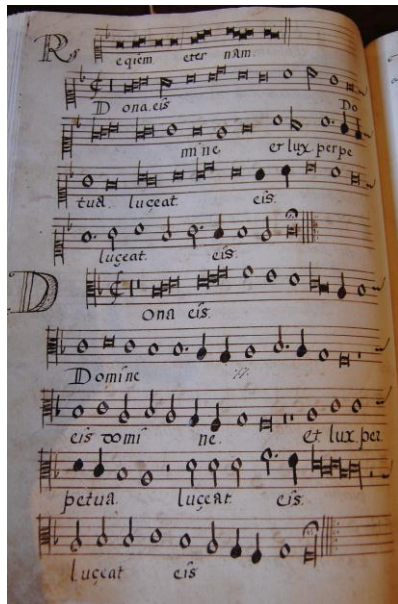 R equiem eter nam.
D ona. eis Do
mi ne. et lux. per pe
tua. luçeat eis.
luçeat. eis.
D ona eis.
Domine
eis domi ne. et lux. per.
petua. luçeat eis.
luçeat eis